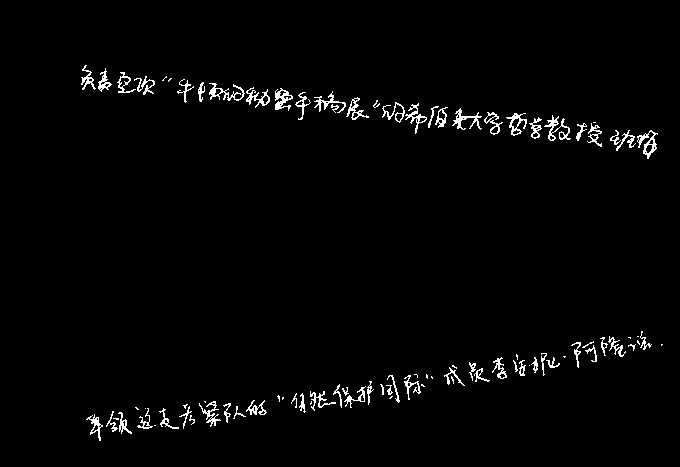 负责这次“牛顿的秘密手稿展”的希伯来大学哲学教授
率领这支考察队的“保护国际”成员李安妮·阿隆说.